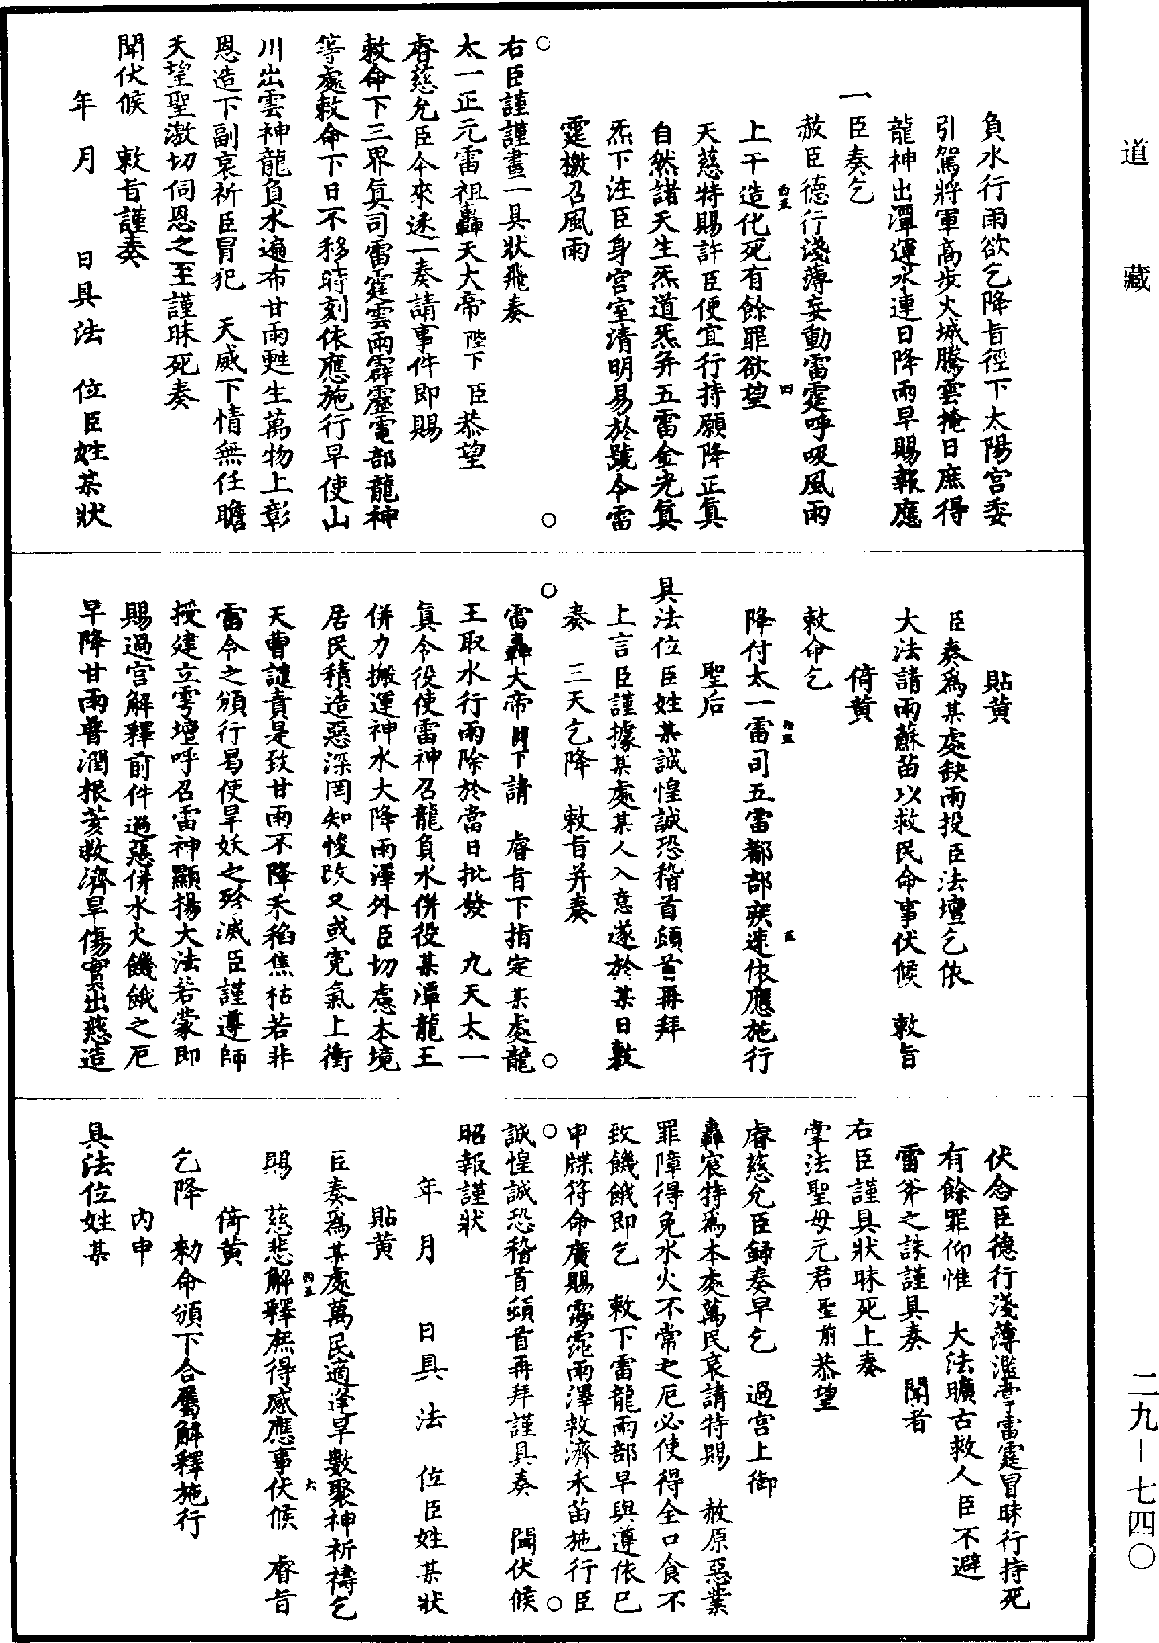 道藏
負水行雨欲乞降旨徑下太陽宮委
引駕將軍高步火城騰雲掩日庶得
龍神出潭運水連日降雨早賜報應
一臣奏乞
赦臣德行淺薄妄動雷霆呼吸風雨
上干造化死有餘罪欲望
天慈特賜許臣便宜行持願降正真
自然諸天生炁道炁并五雷金光真
炁下注臣身宮室清明易於號令雷
霆檄召風雨
右臣謹謹畫一具狀飛奏
太一正元雷祖轟天大帝陛下臣恭望
睿慈允臣今來逐一奏請事件即賜
敕命下三界真司雷霆雲雨霹靂電部龍神
等處敕命下日不移時刻依應施行早使山
川出雲神龍負水遍布甘雨甦生萬物上彰
恩造下副哀祈臣冒犯 天威下情無任瞻
天望聖激切伺恩之至謹昧死奏
聞伏候 敕旨謹奏
年 月 日具 法 位臣姓某狀
貼黃
臣奏為某處缺雨投臣法壇乞依
大法請雨蘇苗以救民命事伏候 敕旨
倚黃
敕命乞
降付太一雷司五雷都部疾速依應施行
聖后
具法位臣姓某誠惶誠恐稽首頓首再拜
上言臣謹據某處某人入意遂於某日敷
奏 三天乞降 敕旨并奏
雷轟大帝陛下請 睿旨下指定某處龍
王取水行雨除於當日批發 九天太一
真令役使雷神召龍負水併役某潭龍王
併力搬運神水大降雨澤外臣切慮本境
居民積造惡深罔知悛改又或冤氣上衝
天曹譴責是致甘雨不降禾稻焦枯若非
雷令之頒行曷使旱妖之殄滅臣謹遵師
授建立雩壇呼召雷神顯揚大法若蒙即
賜過宮解釋前件過惡併水火饑餓之厄
早降甘雨普潤根荄救濟旱傷實出慈造
伏念臣德行淺薄濫掌雷霆冒昧行持死
有餘罪仰惟 大法曠古救人臣不避
雷斧之誅謹具奏 聞者
右臣謹具狀昧死上奏
掌法聖母元君聖前恭望
睿慈允臣錄奏早乞 過宮上御
轟宸特為本處萬民哀請特賜 赦原惡業
罪障得免水火不常之厄必使得全口食不
致饑餓即乞 敕下雷龍雨部早與遵依已
申牒符命廣賜霶霈雨澤救濟禾苗施行臣
誠惶誠恐稽首頓首再拜謹具奏 聞伏候
昭報謹狀
年 月 日具 法 位臣姓某狀
貼黃
臣奏為某處萬民適逢旱數聚神祈禱乞
賜 慈悲解釋庶得感應事伏候 睿旨
倚黃
乞降 勅命頒下合屬解釋施行
內申
具法位姓某
二九—七四〇